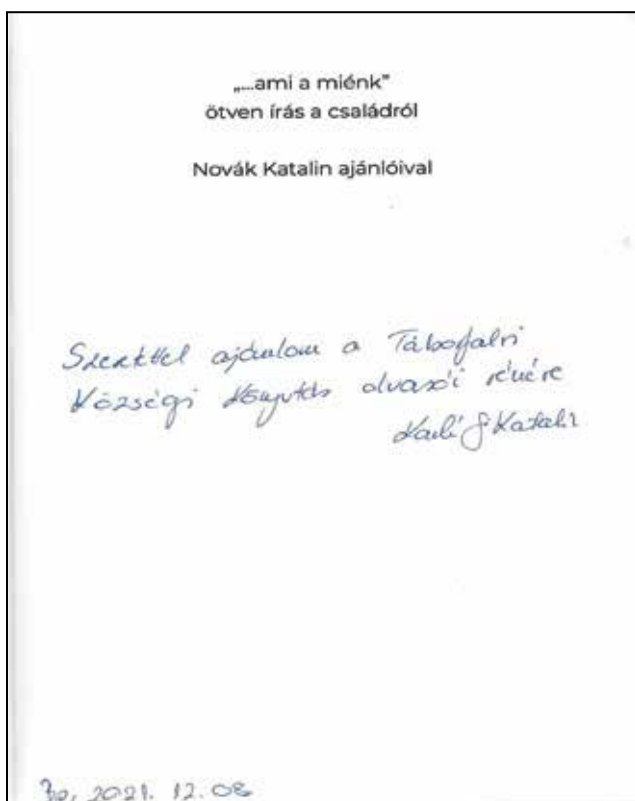 „...ami a miénk”
ötven írás a családról
Novák Katalin ajánlóival
Szeretettel ajánlom a Táborfalvi
Községi Könyvtár olvasói részére
Katalin
Bp, 2021. 12. 08